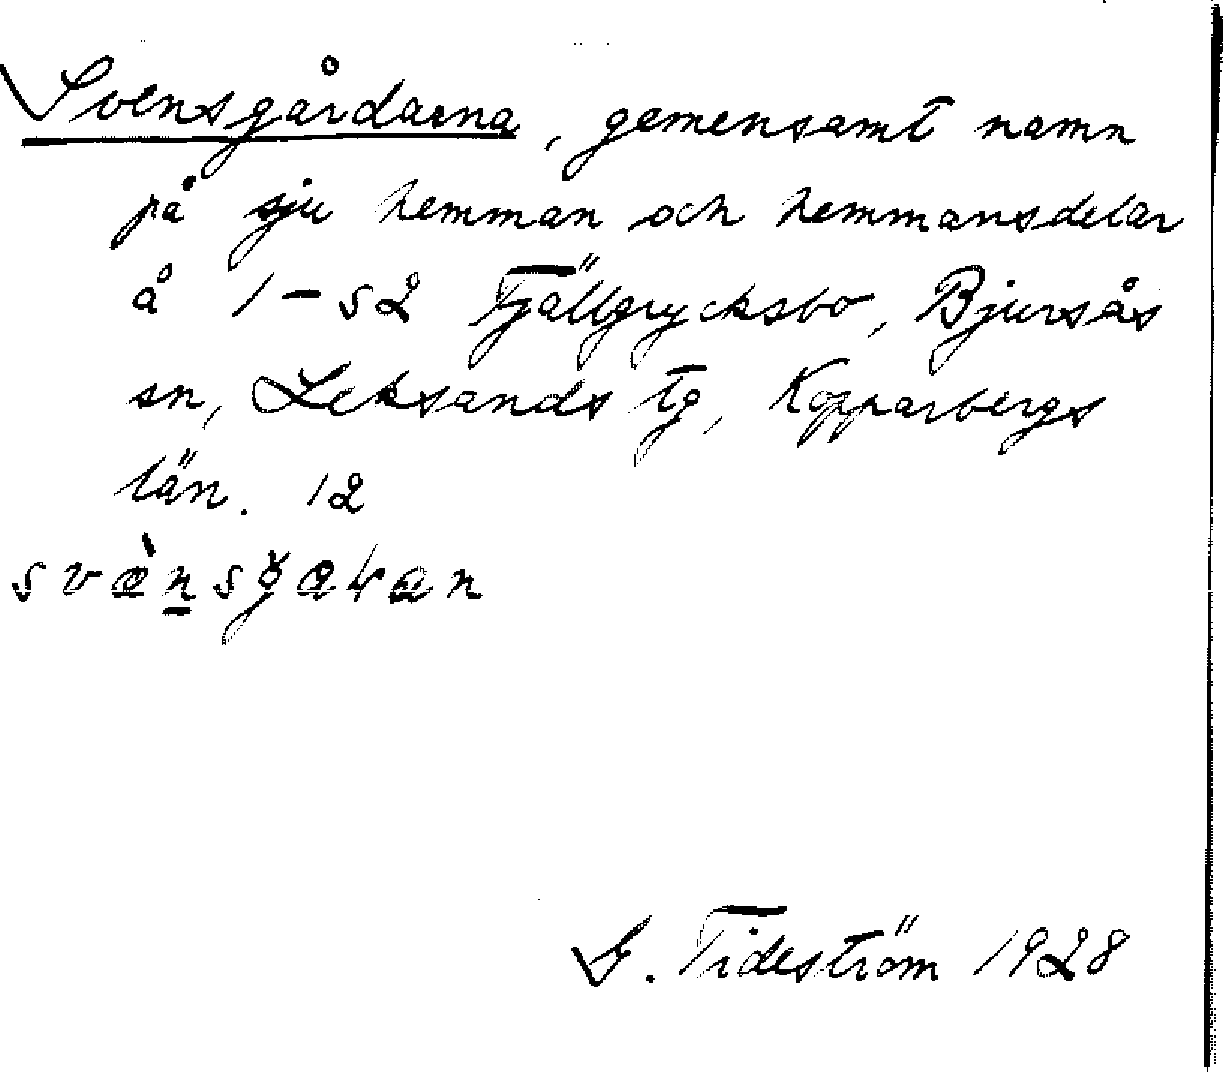 Svensgårdarna, gemensamt namn
på sju hemman och hemmansdelar
å 1-52 Fjällgrycksbo, Bjursås
sn, Leksands tg, Kopparbergs
län. 12
G. Tideström 1928